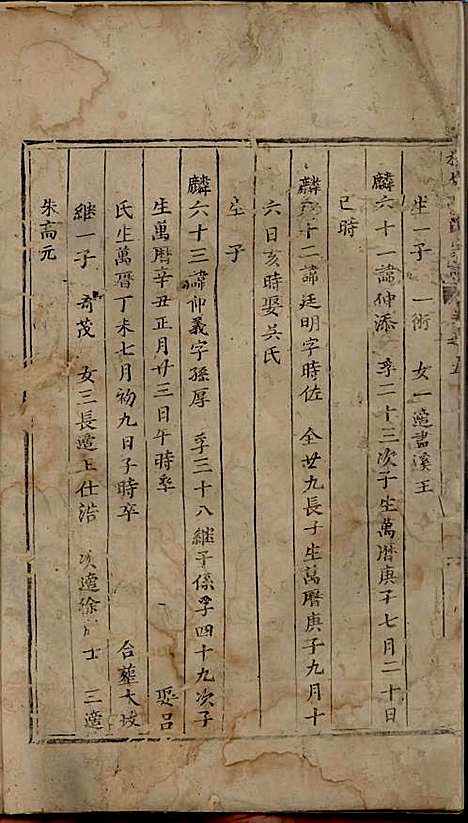 生一子　一術　女一適畫溪王
麟六十一諱仲添　孚二十三次子生萬曆庚子七月二十日
巳時
麟六十二諱廷明字時佐　全廿九長子生萬曆庚子九月十
六日亥時娶吴氏
生子
麟六十三諱仰義字孫厚　孚三十八继子係孚四十九次子
生萬曆辛丑正月廿三日午時卒　娶吕
氏生萬曆丁未七月初九日子時卒　合葬大坟
继一子　奇茂　女三長適上仕浩　次適徐　士　三適
朱高元